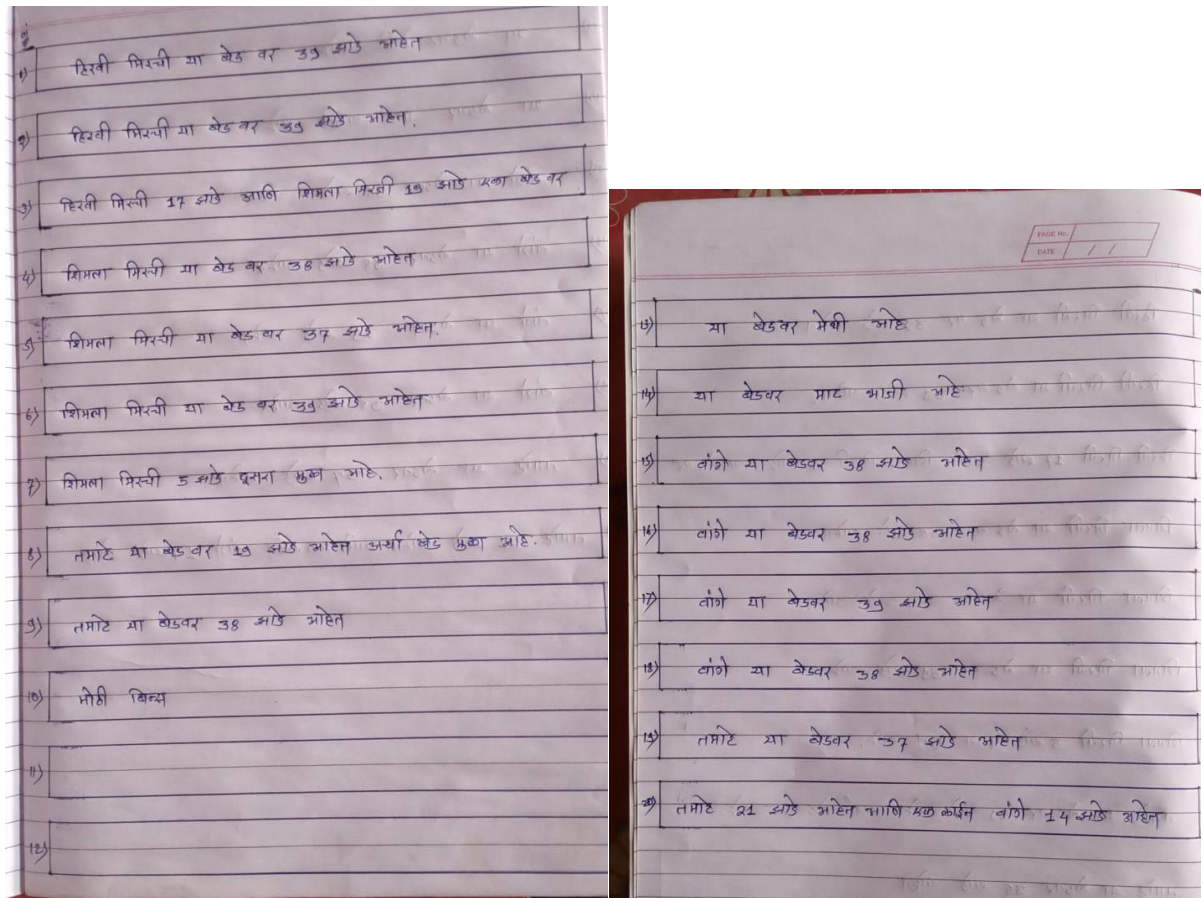 1) हिरवी मिरची या बेड वर 39 झाडे आहेत
2) हिरवी मिरची या बेड वर 39 झाडे आहेत.
3) हिरवी मिरची 17 झाडे आणि शिमला मिरची 19 झाडे एका बेड वर
4) शिमला मिरची या बेड वर 38 झाडे आहेत
5) शिमला मिरची या बेड वर 37 झाडे आहेत.
6) शिमला मिरची या बेड वर 39 झाडे आहेत
7) शिमला मिरची 5 झाडे दूसरा मुळा आहे.
8) तमाटे या बेड वर 19 झाडे आहेत अर्धा बेड मुळा आहे.
9) तमाटे या बेडवर 38 झाडे आहेत
10) मोठी बिन्स
11)
12)
PAGE No.
DATE / /
13) या बेडवर मेथी आहे
14) या बेडवर माट भाजी आहे
15) वांगे या बेडवर 38 झाडे आहेत
16) वांगे या बेडवर 38 झाडे आहेत
17) वांगे या बेडवर 39 झाडे आहेत
18) वांगे या बेडवर 38 झाडे आहेत
19) तमाटे या बेडवर 37 झाडे आहेत
20) तमाटे 21 झाडे आहेत आणि एक लाईन वांगे 14 झाडे आहेत